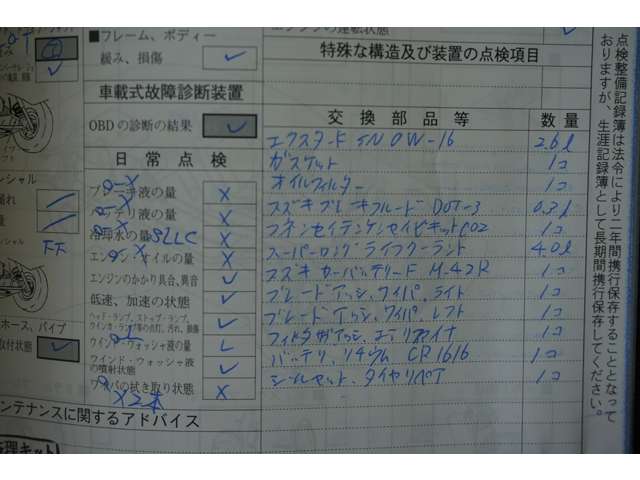 ■フレーム、ボディー
緩み、損傷
車載式故障診断装置
OBDの診断の結果
日常点検
ブレーキ液の量
バッテリ液の量
冷却水の量 SLLC
エンジンオイルの量
エンジンのかかり具合、異音
低速、加速の状態
ヘッド・ランプ、ストップ・ランプ、
ウインカ・ランプ等の点灯、汚れ、損傷
ウインド・ウォッシャ液の量
ウインド・ウォッシャ液
の噴射状態
ワイパの拭き取り状態
×2本
ンテナンスに関するアドバイス
特殊な構造及び装置の点検項目
交換部品等 数量
エクスタードEN 0W-16 2.6l
ガスケット 1コ
オイルフィルター 1コ
スズキブレーキフルード DOT-3 0.3l
スーパーロングライフクーラント 4.0l
スズキカーバッテリード M-42R 1コ
ブレードアッシ、ワイパ、ライト 1コ
ブレードアッシ、ワイパ、レフト 1コ
バッテリ、リチウム CR1616 1コ
シールセット、タイヤリペア 1コ
点検整備記録簿は法令により二年間携行保存することとなって
おりますが、生涯記録簿として長期間携行保存してください。
ンシャル
漏れ
量
シャル
ホース、パイプ
取付状態